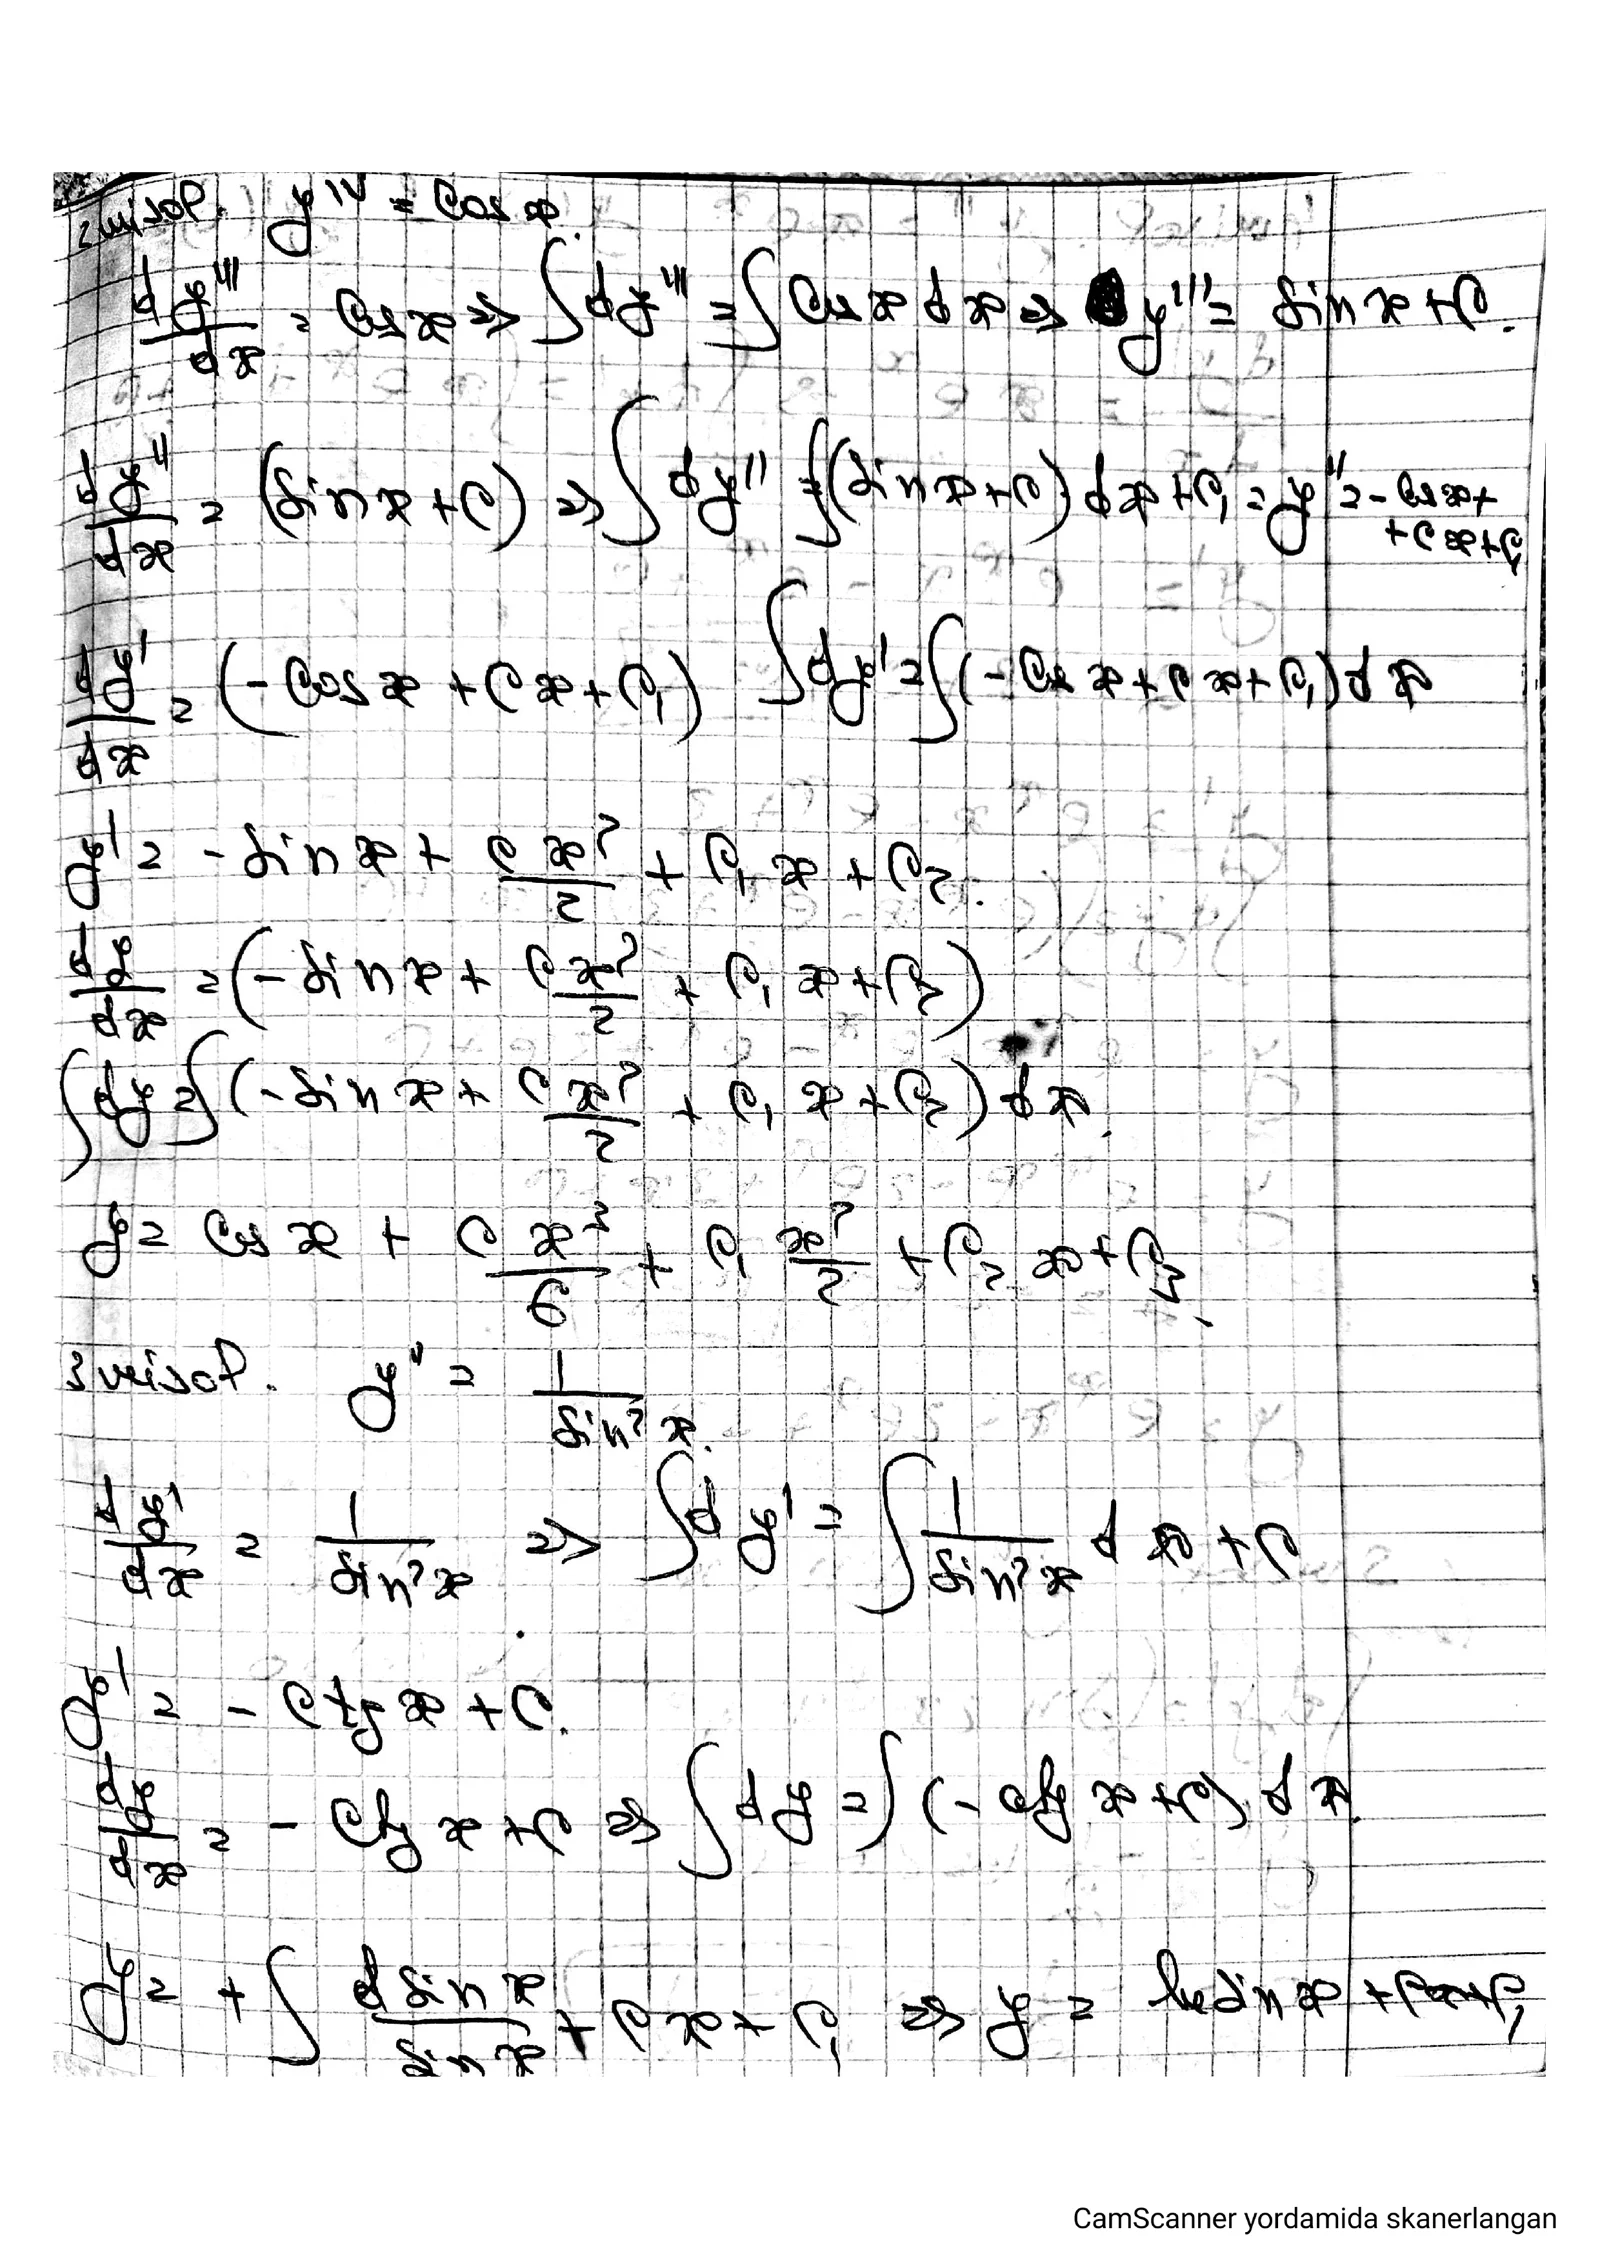 2 misol. y^IV = cos x.
dy'''/dx = cos x => ∫dy''' = ∫cos x dx => y''' = sin x + C.
dy''/dx = (sin x + C) => ∫dy'' = ∫(sin x + C) dx + C₁ = y'' = - cos x +
+ C x + C₁
dy'/dx = (- cos x + C x + C₁) ∫dy' = ∫(- cos x + C x + C₁) dx
y' = - sin x + C x²/2 + C₁ x + C₂.
dy/dx = (- sin x + C x²/2 + C₁ x + C₂)
∫dy = ∫(- sin x + C x²/2 + C₁ x + C₂) dx.
y = cos x + C x³/6 + C₁ x²/2 + C₂ x + C₃.
3 misol. y'' = 1/sin² x.
dy'/dx = 1/sin² x => ∫dy' = ∫ 1/sin² x dx + C
y' = - ctg x + C.
dy/dx = - ctg x + C => ∫dy = ∫(- ctg x + C) dx.
y = + ∫ d sin x/sin x + C x + C₁ => y = ln sin x + C x + C₁
CamScanner yordamida skanerlangan